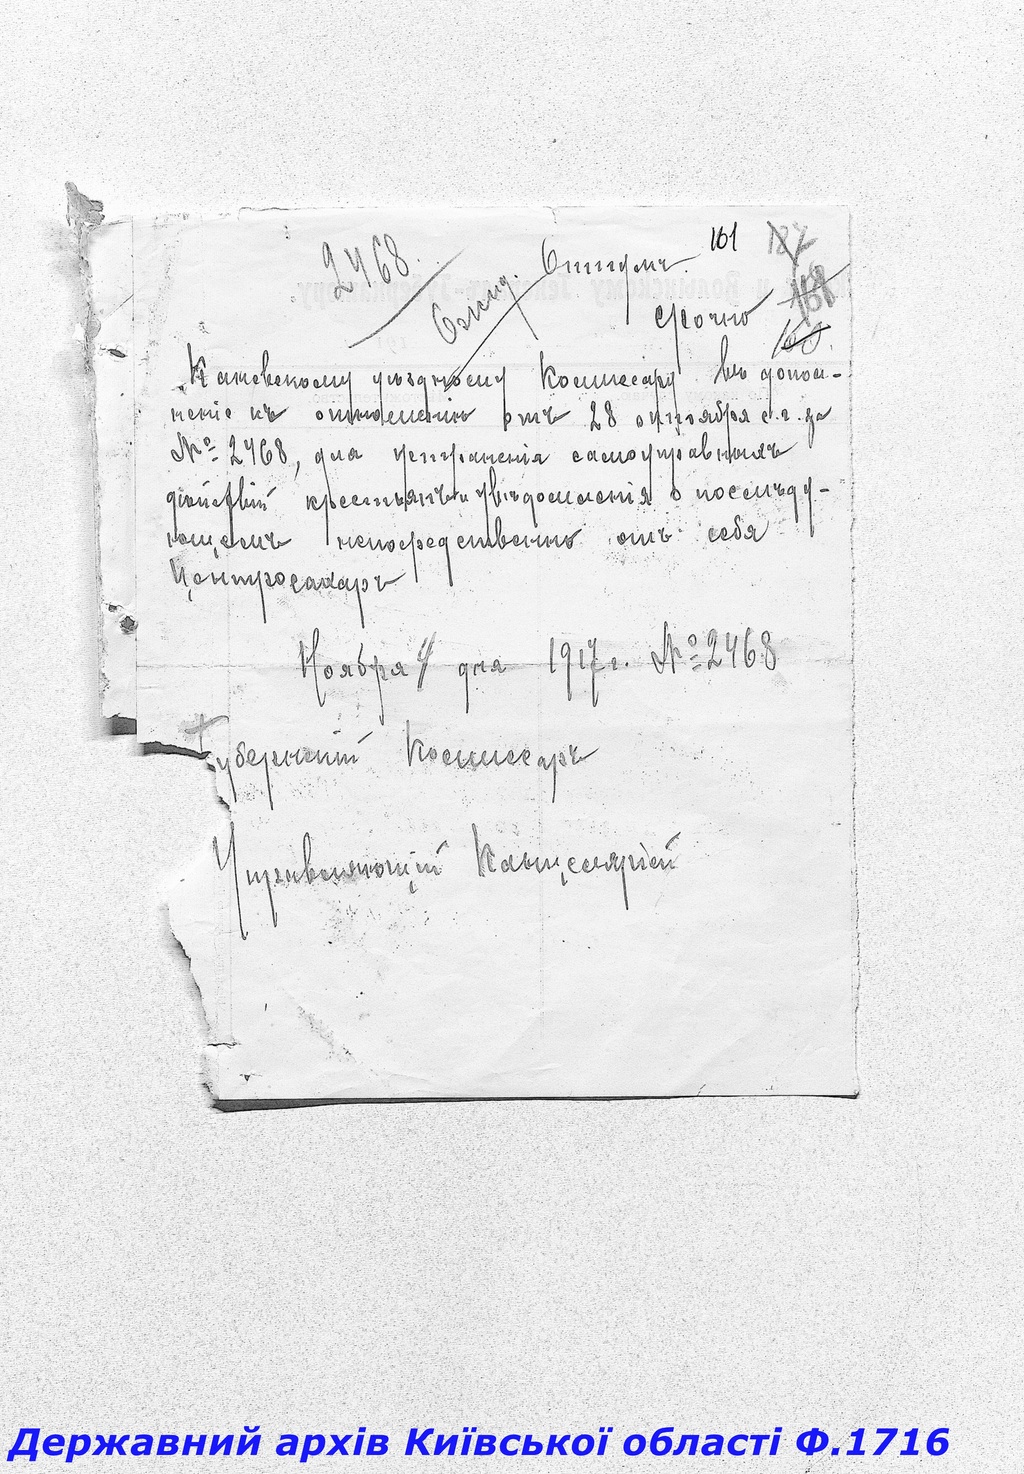 161
2468.
Срочно
Каневскому уѣздному Комиссару въ допол-
неніе къ отношенію отъ 28 октября с.г. за
№ 2468, для устраненія самоуправныхъ
дѣйствій крестьянъ и увѣдомленія о послѣду-
ющемъ непосредственно отъ себя
Центросахаръ
Ноября 4 дня 1917 г. № 2468
Губернскій Комиссаръ
Управляющій Канцеляріей
Державний архів Київської області Ф.1716